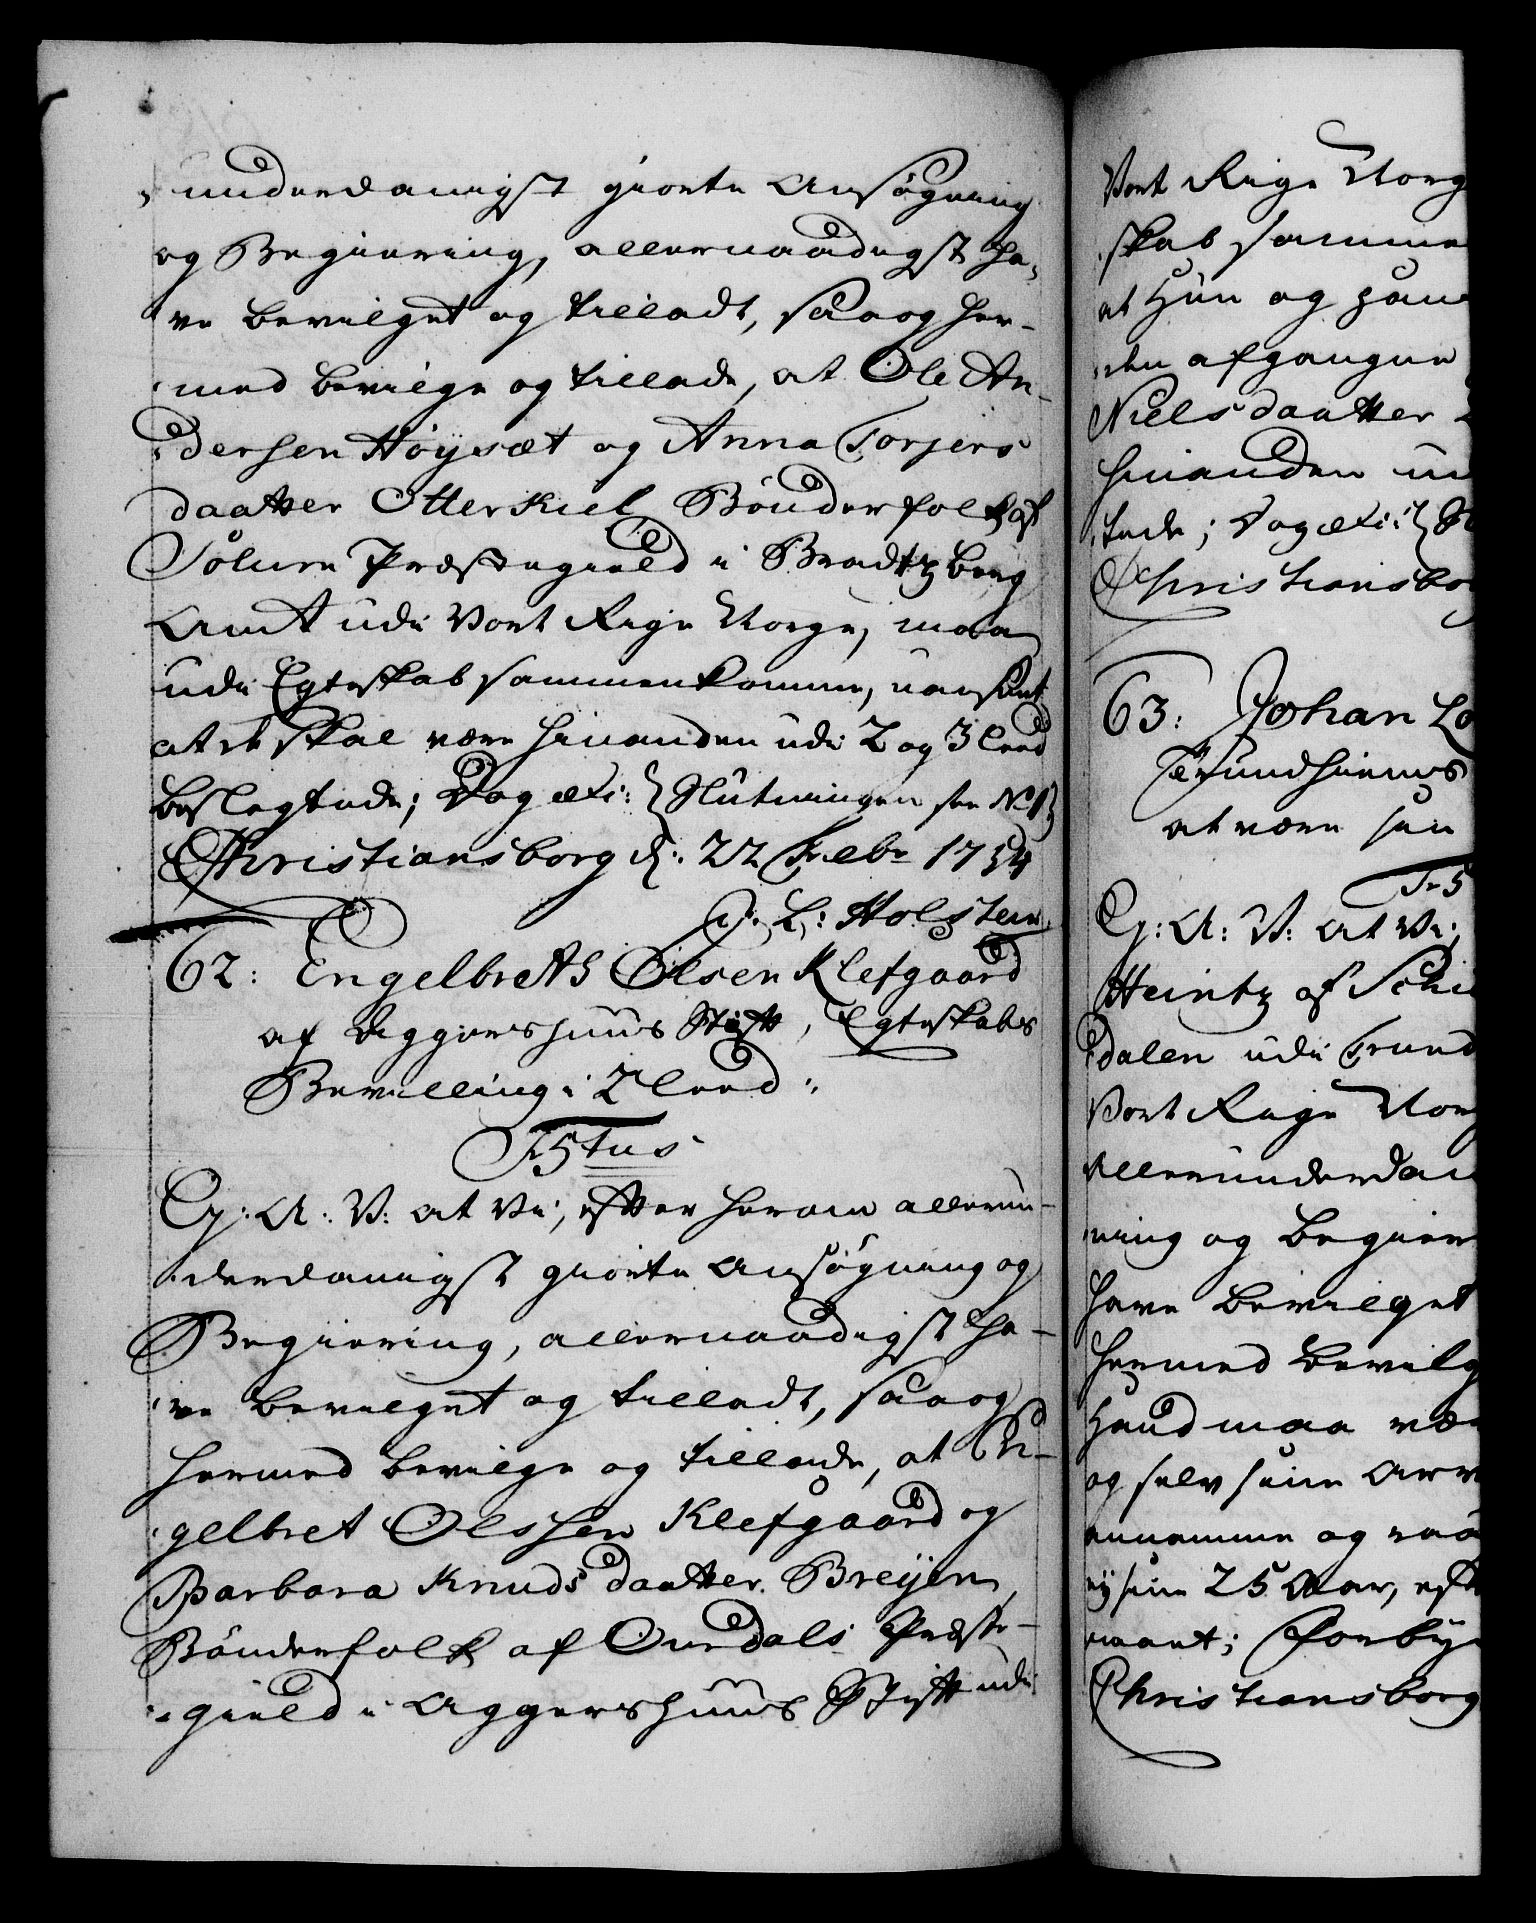 underdanigst giorte Ansøgning
og Begiering, allernaadigst ha-
ve bevilget og tilladt, saa og her-
med bevilge og tillade, at Ole An-
dersen Høysæt og Anna Torjers
daatter Otterkiel Bønderfolk af
Solum Præstegield i Bradtzberg
Amt udi Vort Rige Norge, maa
udi Egteskab sammenkomme, uanseet
at de skal være hinanden udi 2 og 3 leed
beslegtede; Dog etc: Slutningen see No 1
Christiansborg d: 22 Febr 1754
J: L: Holstein
62: Engelbreth Olsen Klefgaard
af Aggershuus Stift, Egteskabs
Bevilling i 2 leed
Textus
G: A: V: at Vi, efter herom allerun-
derdanigst giorte Ansøgning og
Begiering, allernaadigst ha-
ve bevilget og tilladt, saa og
hermed bevilge og tillade, at En-
gelbret Olssen Klefgaard og
Barbara Knuds daatter Breijen,
Bønderfolk af Ourdals Præste-
gield i Aggershuus Stift udi
Vort Rige Norg
skab samme
at Hun og
den afgangne
Niels daatter
hinanden
tede; Dog etc:
Christiansbor
63: Johan Lo
Trundhiems
at være sin
G: A: V: at Vi,
Heintz af
dalen udi Trund
Vort Rige Nor
Allerunderda
ning og Begier
have bevilget
hermed bevilg
Hand maa væ
og selv sine Arv
annamme og raa
sine 25 Aar, eft
Forby
Christiansborg